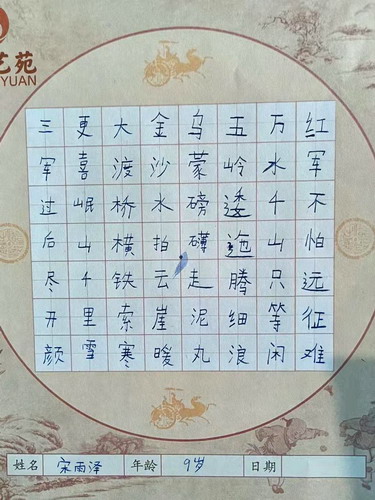 艺苑
YUAN
红军不怕远征难
万水千山只等闲
五岭逶迤腾细浪
乌蒙磅礴走泥丸
金沙水拍云崖暖
大渡桥横铁索寒
更喜岷山千里雪
三军过后尽开颜
姓名 宋雨泽 年龄 9岁 日期